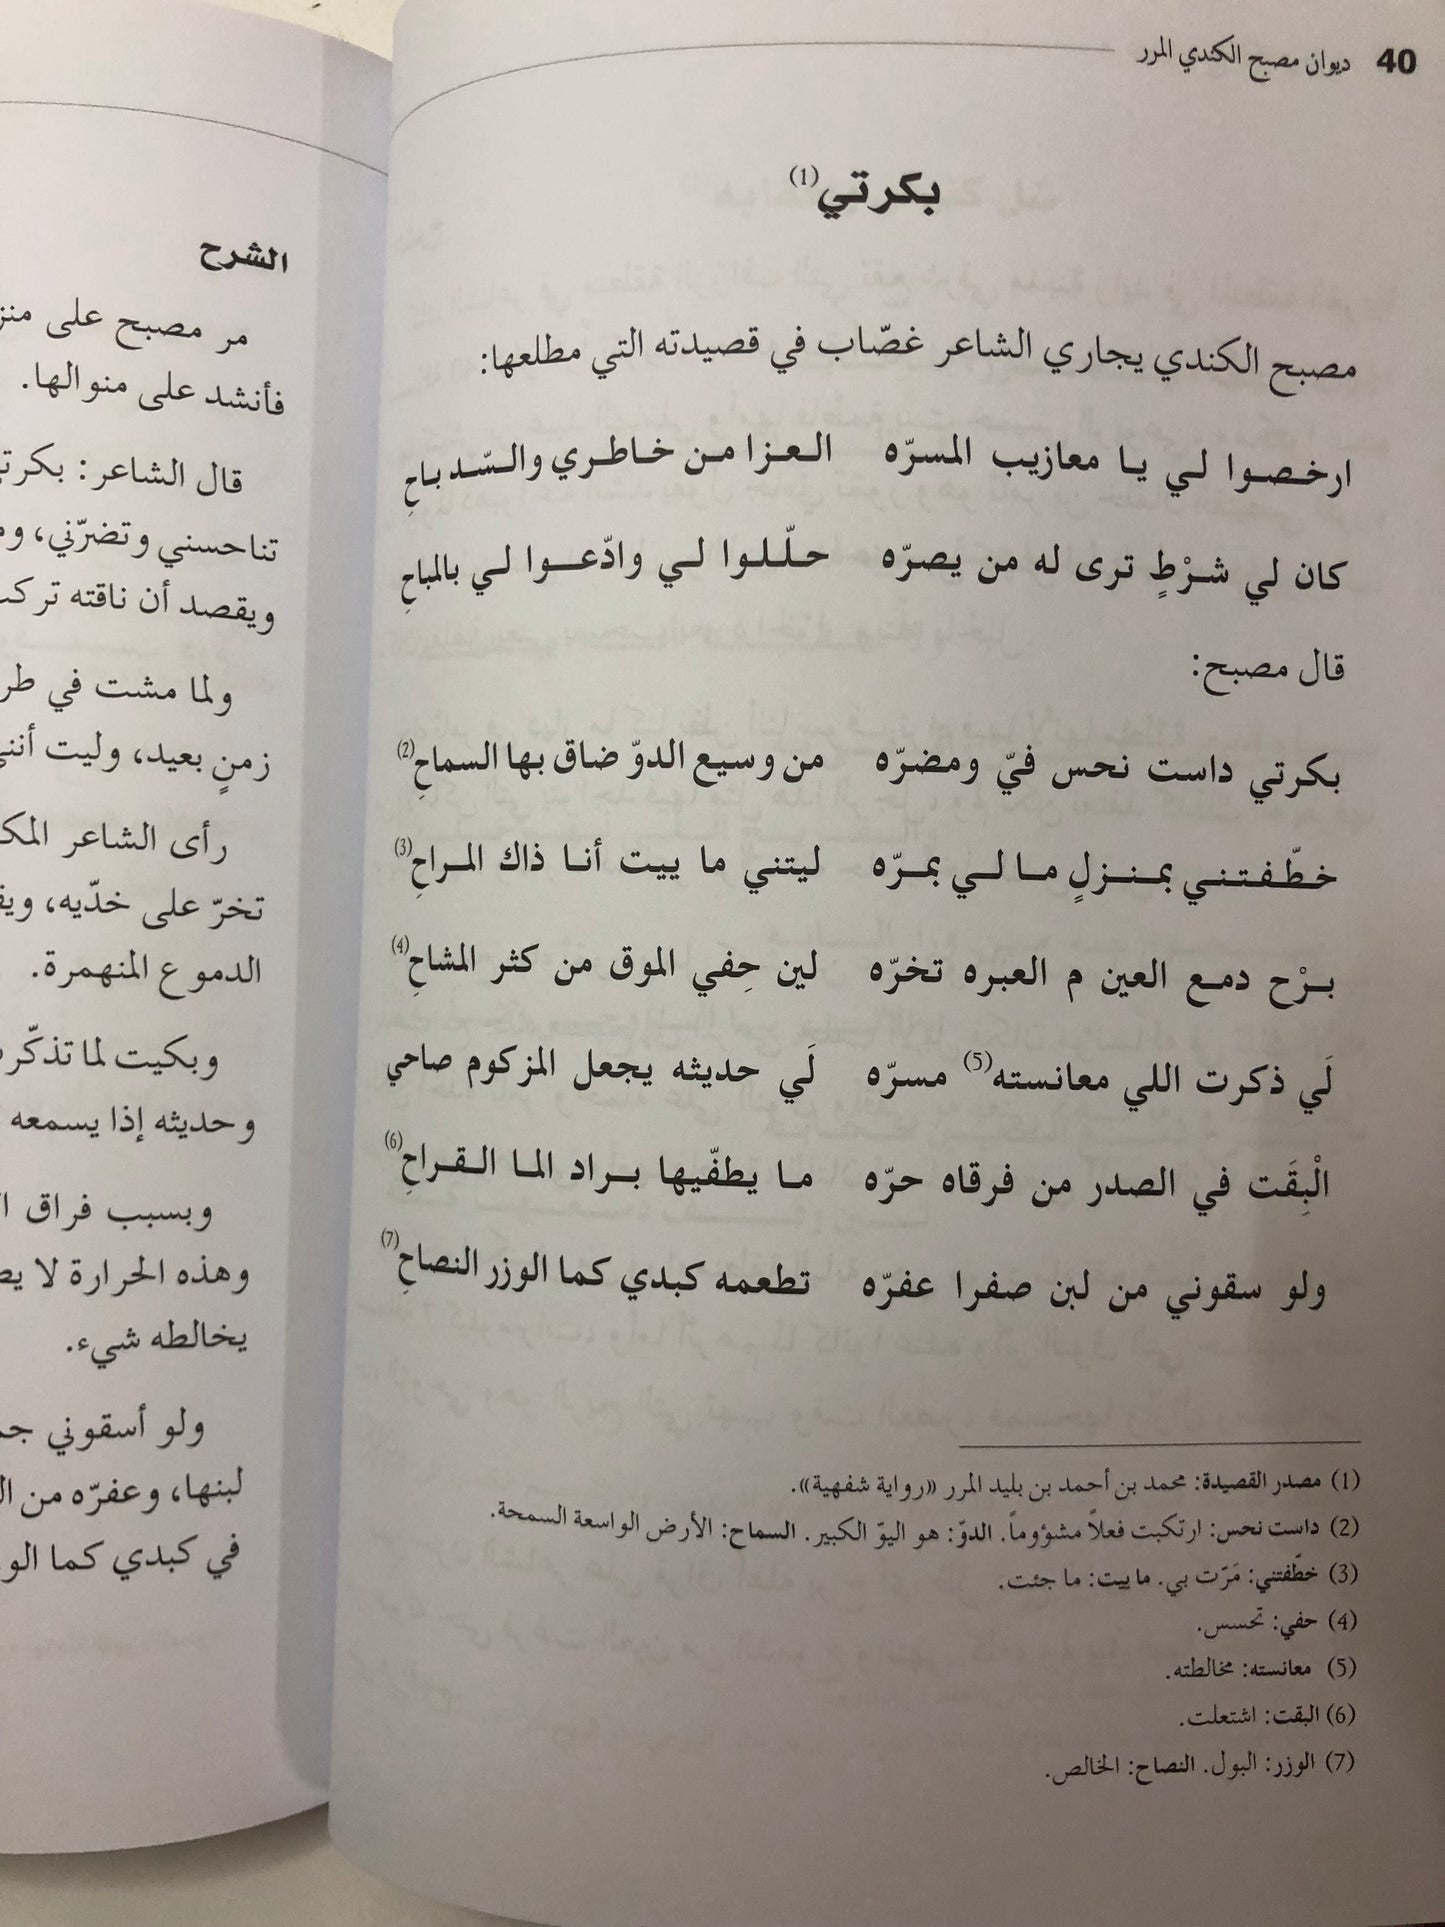 40 ديوان مصبح الكندي المرر
بكرتي(1)
مصبح الكندي يجاري الشاعر غصّاب في قصيدته التي مطلعها:
ارخـصـوا لـي يـا معازيب المسرّه الـعـزا مـن خـاطـري والـسّـد بـاحِ
كان لي شـرْطٍ ترى له من يصرّه حـلّـلـوا لـي وادّعـوا لـي بالمباحِ
قال مصبح:
بكرتي داست نحس فيّ ومضرّه من وسيع الدوّ ضاق بها السماحِ(2)
خـطّـفـتـنـي بمـنـزلٍ مـا لـي بمـرّه ليتني ما ييت أنـا ذاك المـراحِ(3)
بـرْح دمـع العين م العبره تخرّه لين حِفي الموق من كثر المشاحِ(4)
لَي ذكرت اللي معانسته(5) مسرّه لَي حديثه يجعل المزكوم صاحي
الْبِقَت في الصدر من فرقاه حرّه مـا يطفّيها بـراد المـا الـقـراحِ(6)
ولو سقوني من لبن صفرا عفرّه تطعمه كبدي كما الوزر النصاحِ(7)
(1) مصدر القصيدة: محمد بن أحمد بن بليد المرر «رواية شفهية».
(2) داست نحس: ارتكبت فعلاً مشؤوماً. الدوّ: هو اليوّ الكبير. السماح: الأرض الواسعة السمحة.
(3) خطّفتني: مَرّت بي. ما ييت: ما جئت.
(4) حفي: تحسس.
(5) معانسته: مخالطته.
(6) البقت: اشتعلت.
(7) الوزر: البول. النصاح: الخالص.
الشرح
مر مصبح على
فأنشد على منوالها.
قال الشاعر:
تناحسني وتضرّني،
ويقصد أن ناقته
ولما مشت في
زمنٍ بعيد، وليت
رأى الشاعر
تخرّ على خدّيه،
الدموع المنهمرة.
وبكيت لما
وحديثه إذا يسمعه
وبسبب فراق
وهذه الحرارة لا
يخالطه شيء.
ولو أسقوني
لبنها، وعفرّه من
في كبدي كما